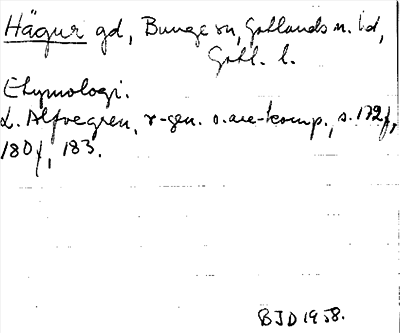 Hägur gd, Bunge sn, Gotlands n. hd,
Gotl. l.
Etymologi.
L. Alfvegren, r-gen. o. are-komp., s. 172f,
180f, 183.
BJD 1958.